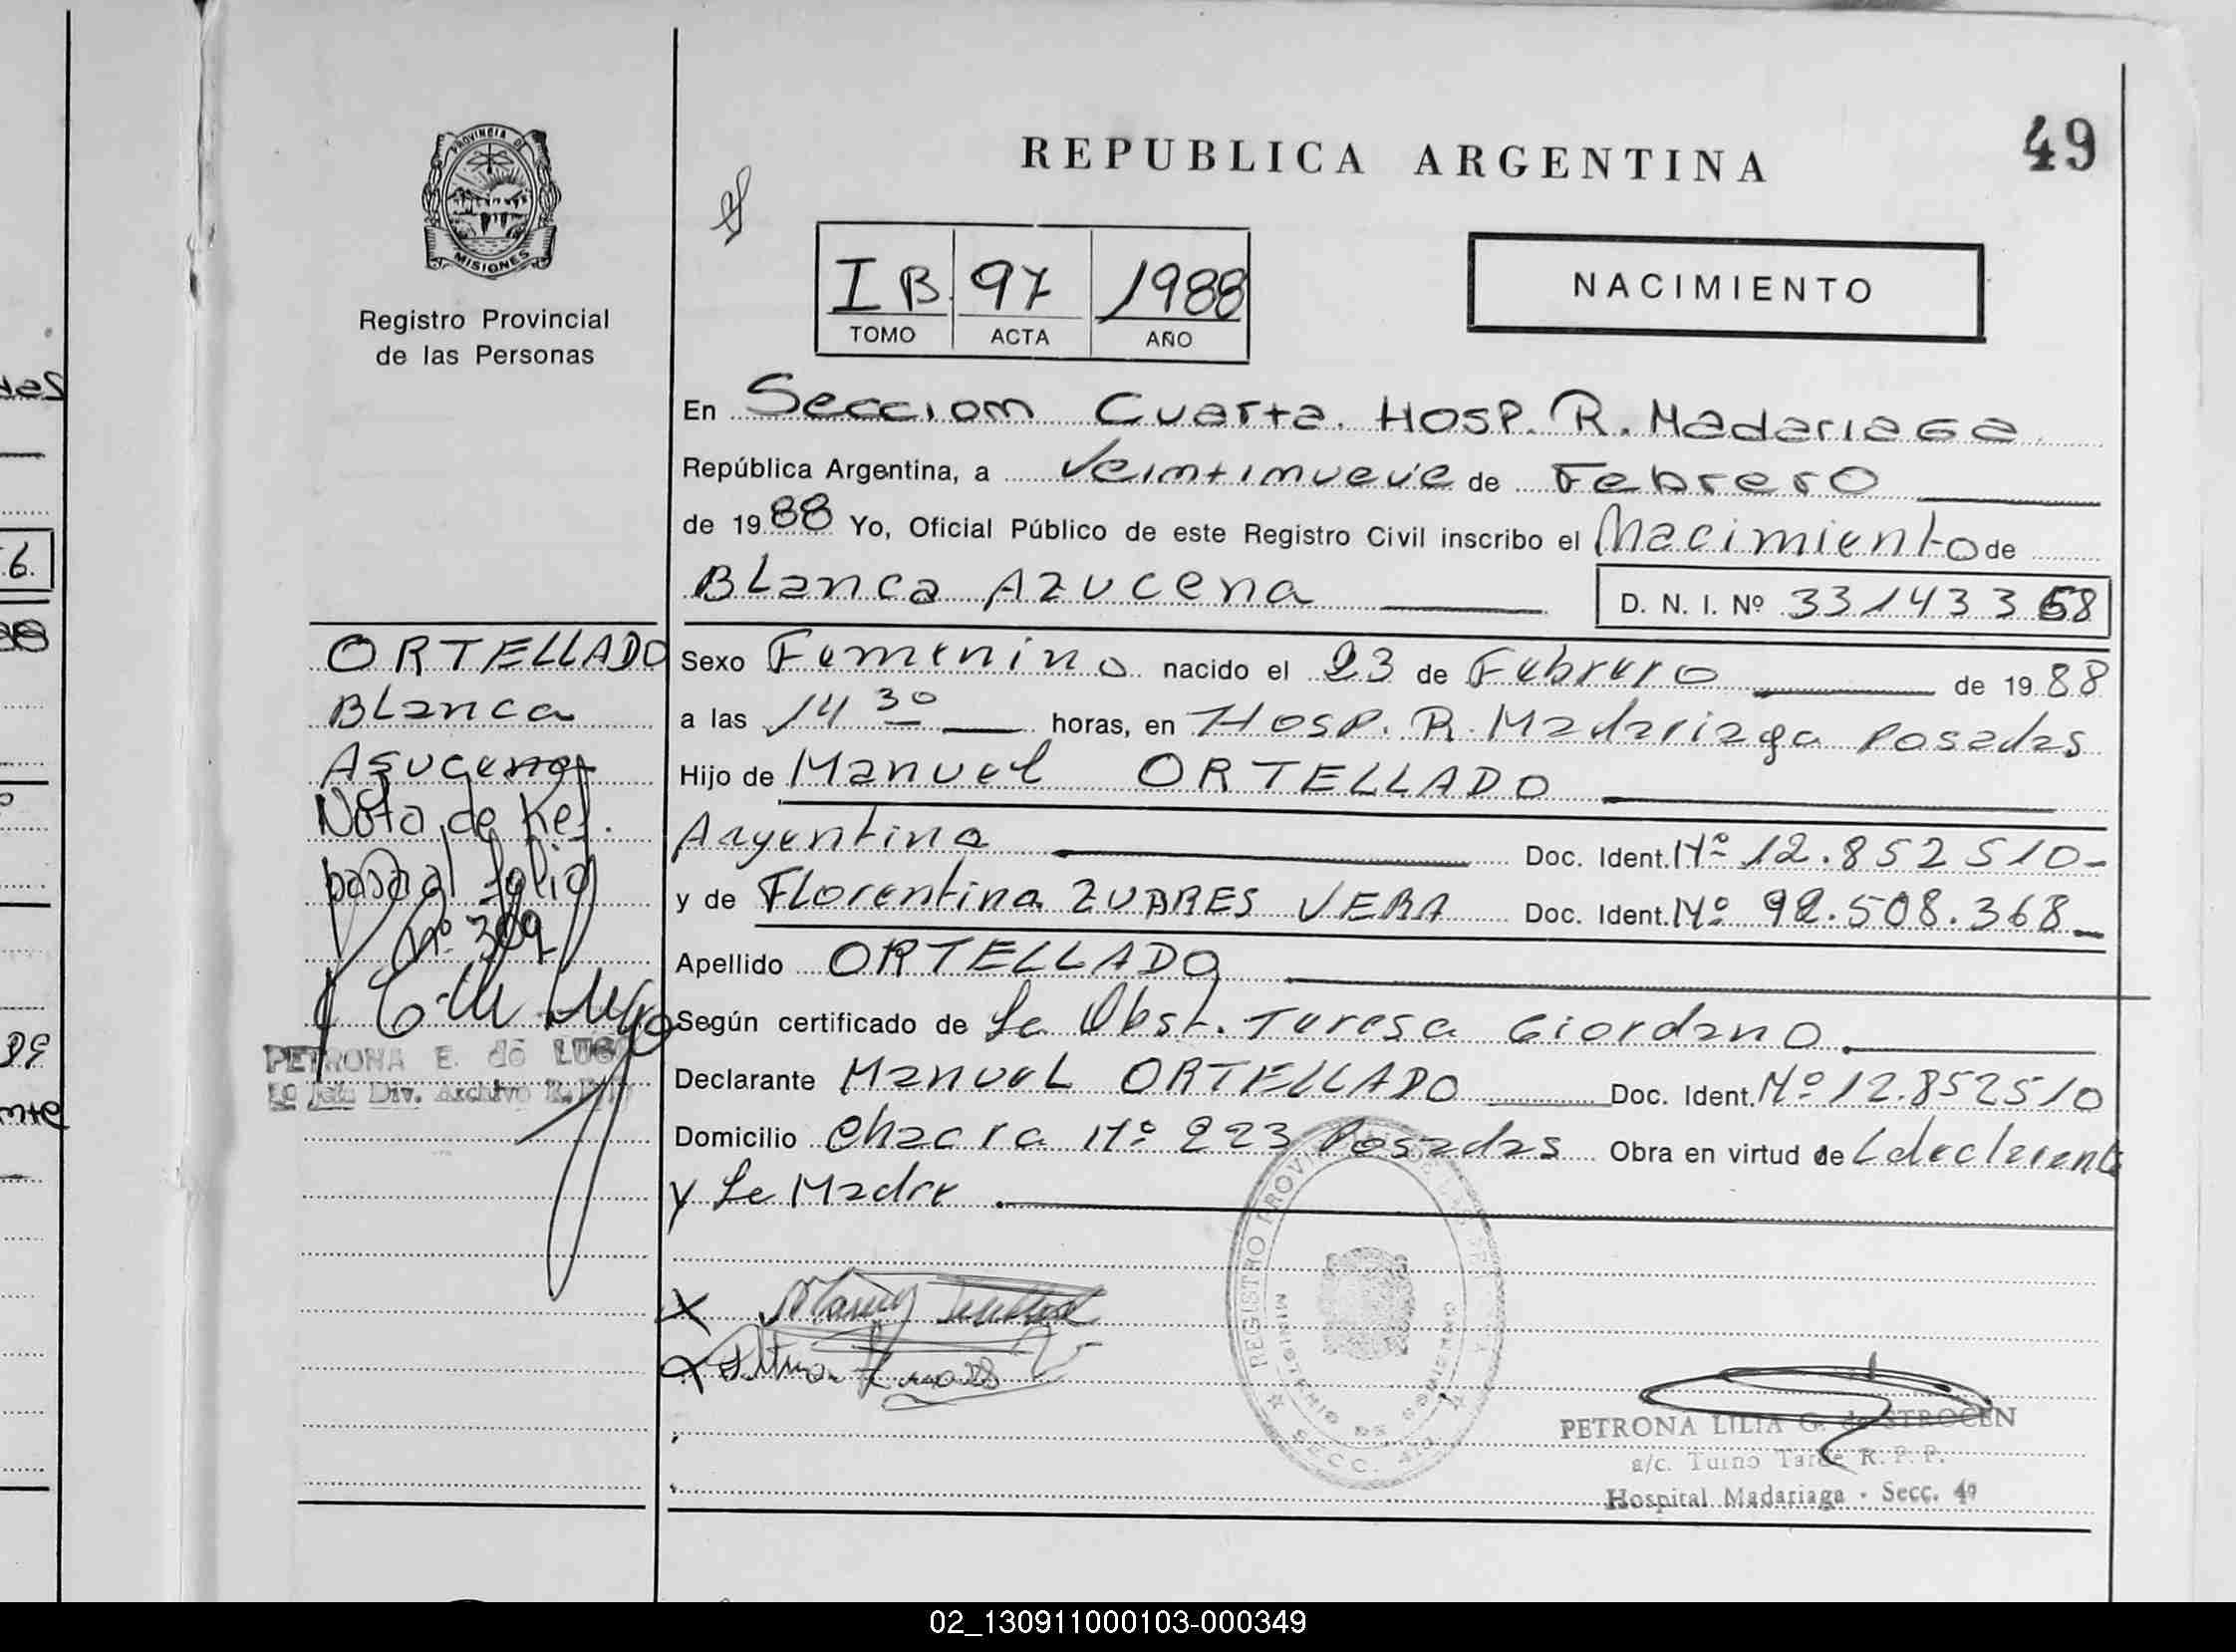 des
6.
88
DE
mte
PROVINCIA DE
MISIONES
Registro Provincial
de las Personas
REPUBLICA ARGENTINA
49
I B 97 1988
TOMO ACTA AÑO
NACIMIENTO
En Seccion Cuarta. Hosp. R. Madariaga
República Argentina, a Veintinueve de Febrero
de 1988 Yo, Oficial Público de este Registro Civil inscribo el Nacimiento de
Blanca Azucena D. N. I. Nº 33143368
ORTELLADO
Blanca
Asucena
Nota de Ref.
pasa al folio
nº 309
PETRONA E. de LUGO
Div. Archivo
Sexo Femenino nacido el 23 de Febrero de 1988
a las 14 30 horas, en Hosp. R. Madariaga Posadas
Hijo de Manuel ORTELLADO
Argentina Doc. Ident. Nº 12.852510-
y de Florentina ZUBRES VERA Doc. Ident. Nº 92.508.368
Apellido ORTELLADO
Según certificado de La Obst. Teresa Giordano.
Declarante Manuel ORTELLADO Doc. Ident. Nº 12.852510
Domicilio Chacra Nº 223 Posadas Obra en virtud de L declarante
y La Madre.
REGISTRO PROVINCIAL DE LAS PERSONAS
MINISTERIO DE GOBIERNO
SECC. 4ta
X
PETRONA LILIA G. de STROCEN
a/c. Turno Tarde R. P. P.
Hospital Madariaga - Secc. 4ª
02_130911000103-000349